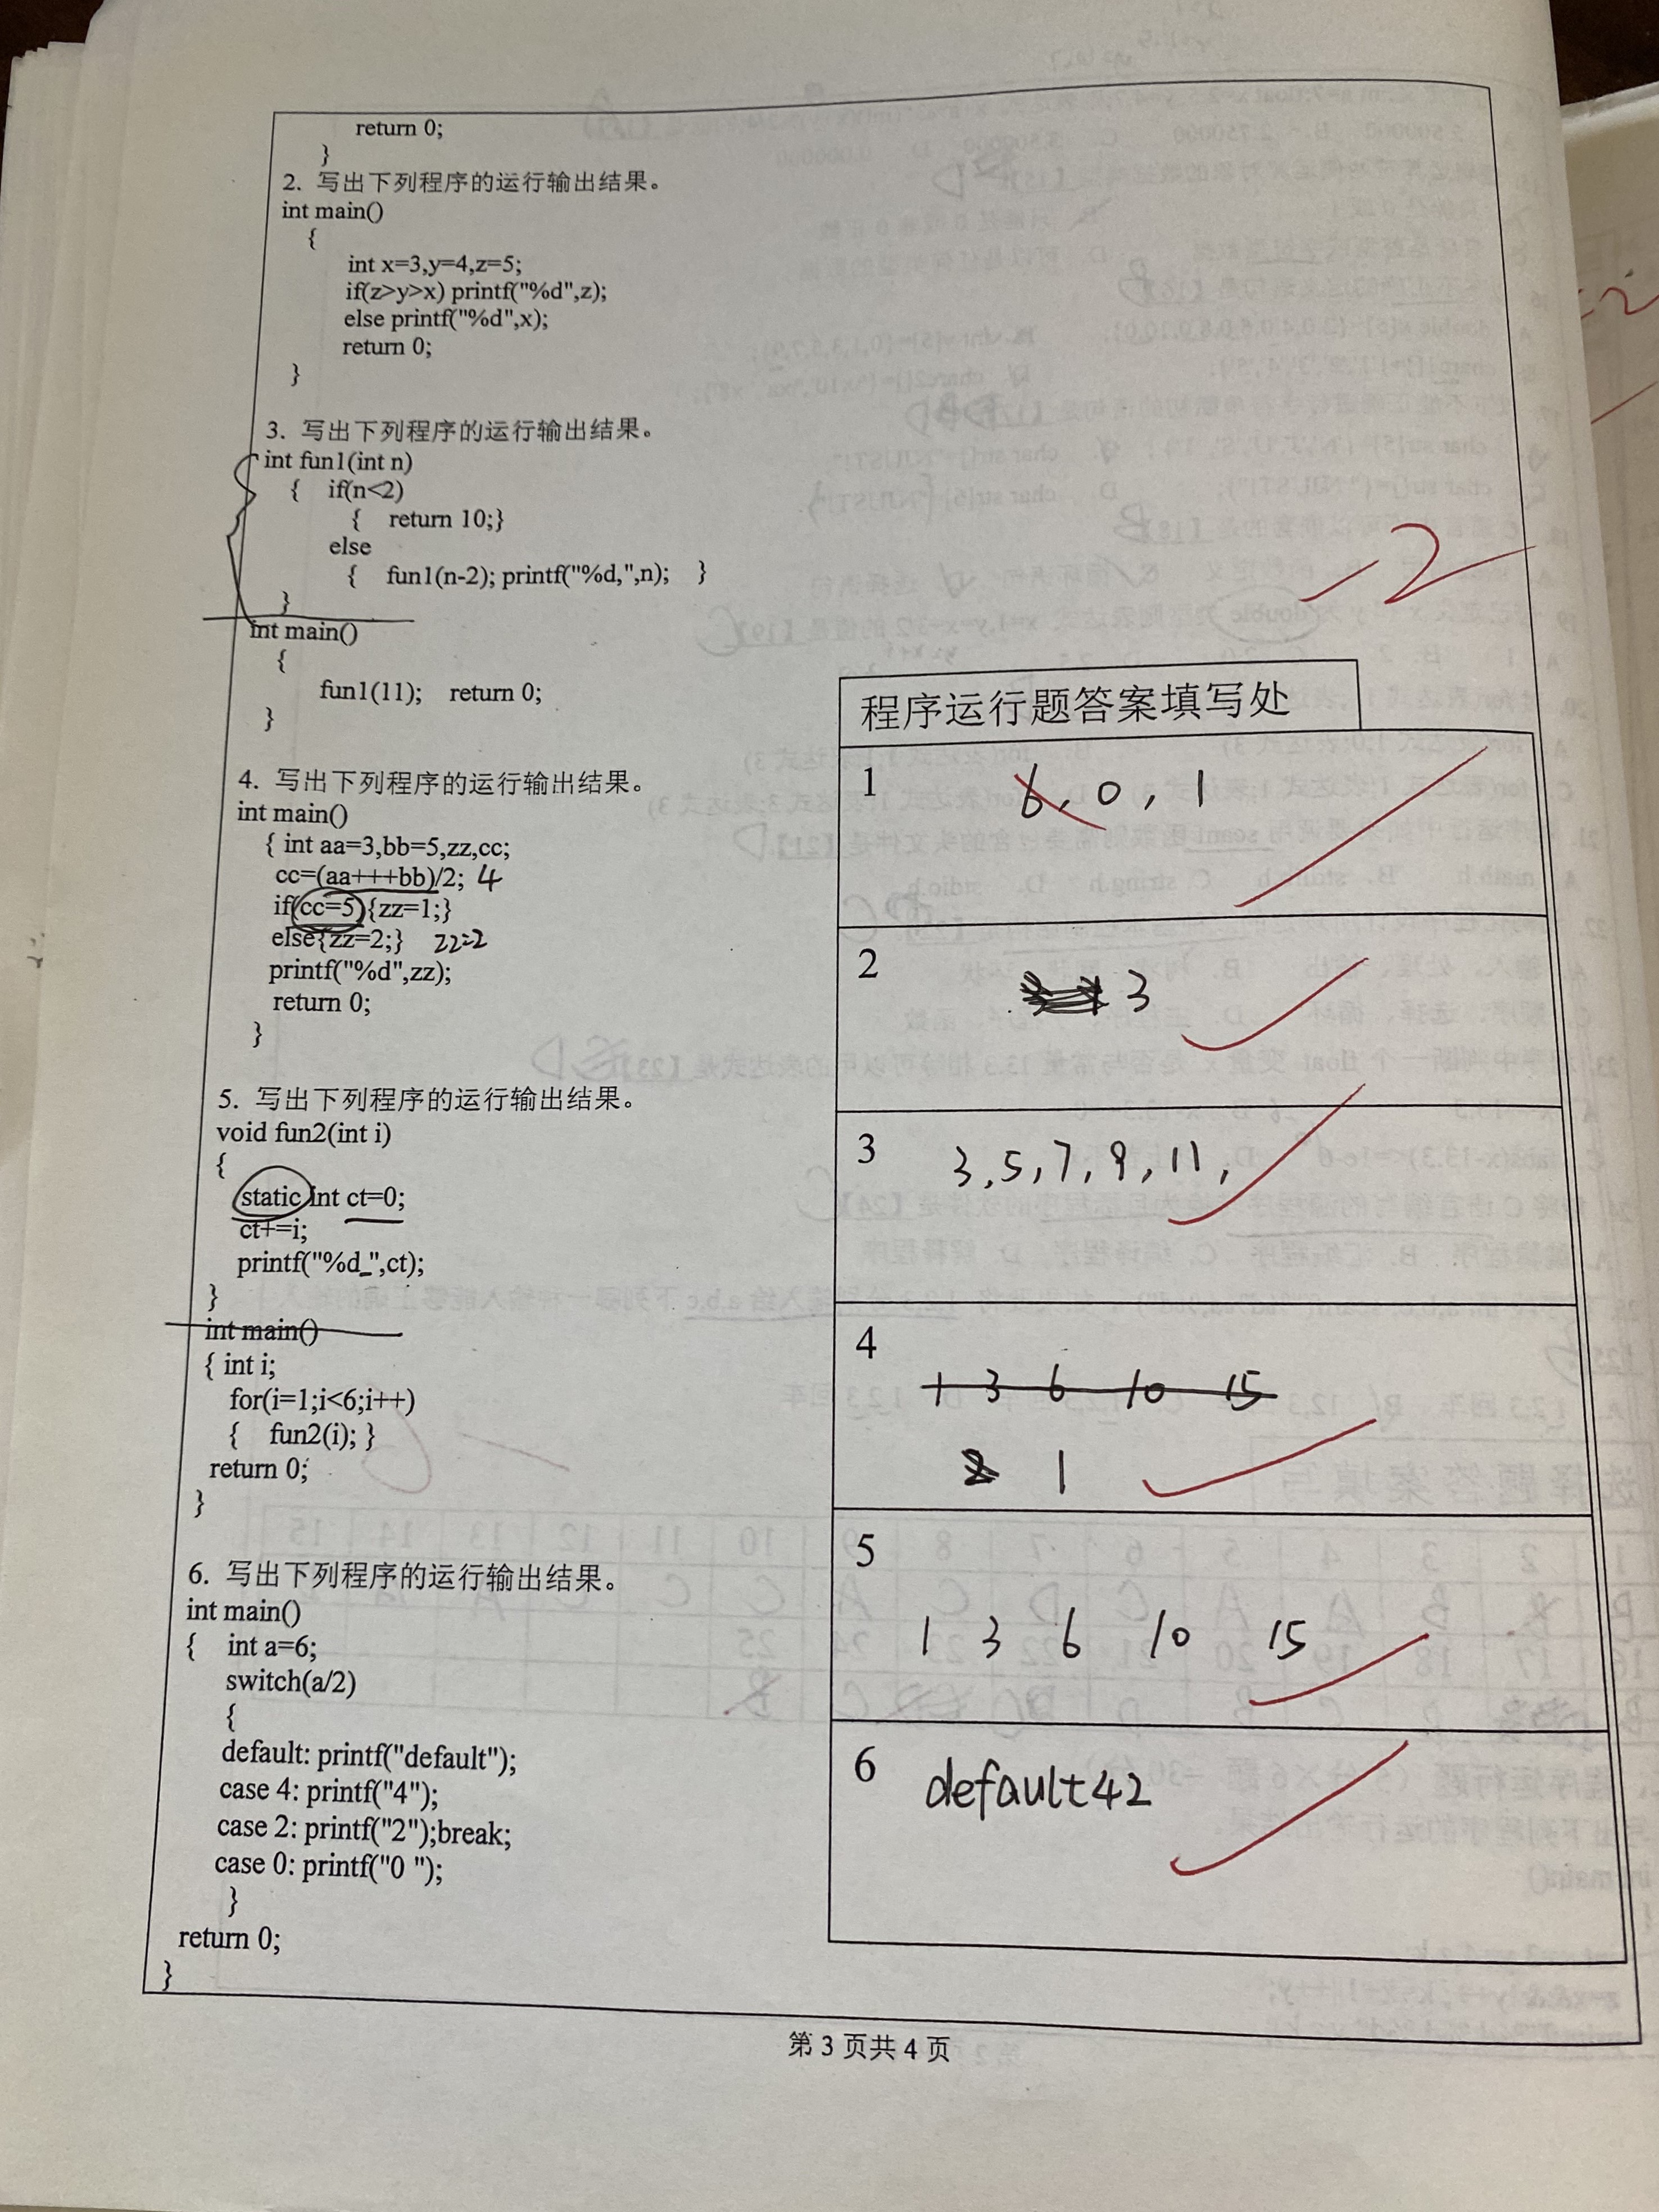 return 0;
}
2. 写出下列程序的运行输出结果。
int main()
{
int x=3,y=4,z=5;
if(z>y>x) printf("%d",z);
else printf("%d",x);
return 0;
}
3. 写出下列程序的运行输出结果。
int fun1(int n)
{ if(n<2)
{ return 10;}
else
{ fun1(n-2); printf("%d,",n); }
}
int main()
{
fun1(11); return 0;
}
4. 写出下列程序的运行输出结果。
int main()
{ int aa=3,bb=5,zz,cc;
cc=(aa+++bb)/2; 4
if(cc=5){zz=1;}
else{zz=2;} zz=2
printf("%d",zz);
return 0;
}
5. 写出下列程序的运行输出结果。
void fun2(int i)
{
static int ct=0;
ct+=i;
printf("%d_",ct);
}
int main()
{ int i;
for(i=1;i<6;i++)
{ fun2(i); }
return 0;
}
6. 写出下列程序的运行输出结果。
int main()
{ int a=6;
switch(a/2)
{
default: printf("default");
case 4: printf("4");
case 2: printf("2");break;
case 0: printf("0 ");
}
return 0;
}
-2
程序运行题答案填写处
1 6, 0, 1
2 3
3 3,5,7,9,11,
4 1 3 6 10 15
1
5
1 3 6 10 15
6 default42
第 3 页共 4 页